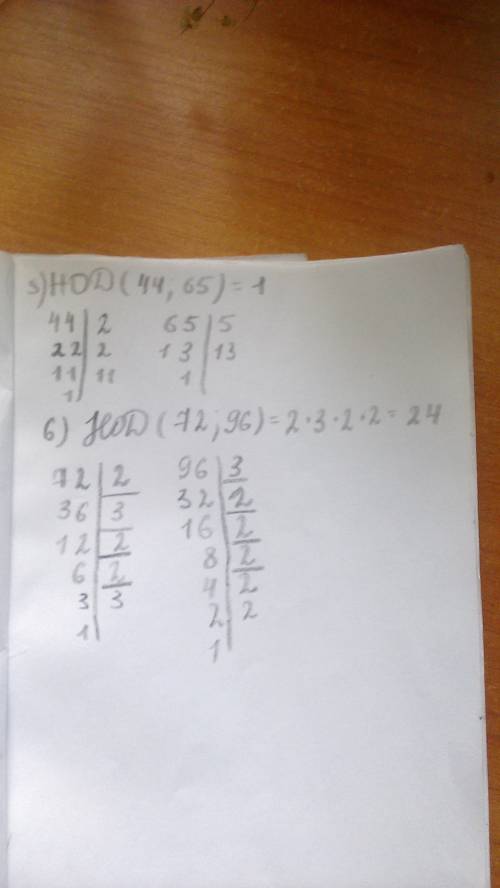 5) НОД (44, 65) = 1
44 | 2 65 | 5
22 | 2 13 | 13
11 | 11 1
1
6) НОД (72; 96) = 2 · 3 · 2 · 2 = 24
72 | 2 96 | 3
36 | 3 32 | 2
12 | 2 16 | 2
6 | 2 8 | 2
3 | 3 4 | 2
1 2 | 2
1